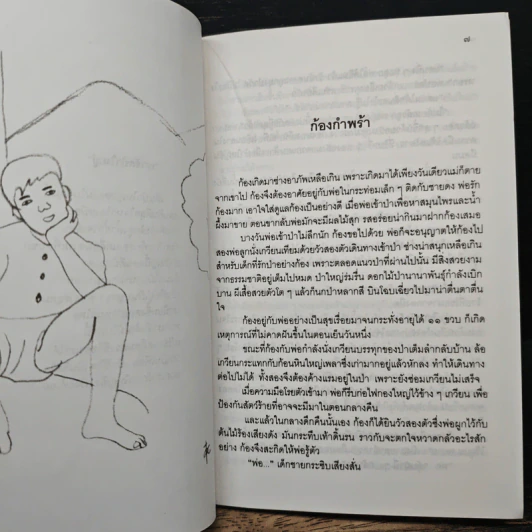 ๗
ก้องกำพร้า
ก้องเกิดมาช่างอาภัพเหลือเกิน เพราะเกิดมาได้เพียงวันเดียวแม่ก็ตาย
จากเขาไป ก้องจึงต้องอาศัยอยู่กับพ่อในกระท่อมเล็ก ๆ ติดกับชายดง พ่อรัก
ก้องมาก เอาใจใส่ดูแลก้องเป็นอย่างดี เมื่อพ่อเข้าป่าเพื่อหาสมุนไพรและน้ำ
ผึ้งมาขาย ตอนขากลับพ่อมักจะมีผลไม้สุก รสอร่อยน่ากินมาฝากก้องเสมอ
บางวันพ่อเข้าป่าไม่ลึกนัก ก้องขอไปด้วย พ่อก็จะอนุญาตให้ก้องไป
สองพ่อลูกนั่งเกวียนเทียมด้วยวัวสองตัวเดินทางเข้าป่า ช่างน่าสนุกเหลือเกิน
สำหรับเด็กที่รักป่าอย่างก้อง เพราะตลอดแนวป่าที่ผ่านไปนั้น มีสิ่งสวยงาม
จากธรรมชาติอยู่เต็มไปหมด ป่าใหญ่ร่มรื่น ดอกไม้ป่านานาพันธุ์กำลังเบิก
บาน ผีเสื้อสวยตัวโต ๆ แล้วก็นกป่าหลากสี บินโฉบเฉี่ยวไปมาน่าตื่นตาตื่น
ใจ
ก้องอยู่กับพ่ออย่างเป็นสุขเรื่อยมาจนกระทั่งอายุได้ ๑๑ ขวบ ก็เกิด
เหตุการณ์ที่ไม่คาดฝันขึ้นในตอนเย็นวันหนึ่ง
ขณะที่ก้องกับพ่อกำลังนั่งเกวียนบรรทุกของป่าเต็มลำกลับบ้าน ล้อ
เกวียนกระแทกกับก้อนหินใหญ่เพลาซึ่งเก่ามากอยู่แล้วหักลง ทำให้เดินทาง
ต่อไปไม่ได้ ทั้งสองจึงต้องค้างแรมอยู่ในป่า เพราะยังซ่อมเกวียนไม่เสร็จ
เมื่อความมืดโรยตัวเข้ามา พ่อก็รีบก่อไฟกองใหญ่ไว้ข้าง ๆ เกวียน เพื่อ
ป้องกันสัตว์ร้ายที่อาจจะมีมาในตอนกลางคืน
และแล้วในกลางดึกคืนนั้นเอง ก้องก็ได้ยินวัวสองตัวซึ่งพ่อผูกไว้กับ
ต้นไม้ร้องเสียงดัง มันกระทืบเท้าดิ้นรน ราวกับจะตกใจหวาดกลัวอะไรสัก
อย่าง ก้องจึงสะกิดให้พ่อรู้ตัว
"พ่อ..." เด็กชายกระซิบเสียงสั่น